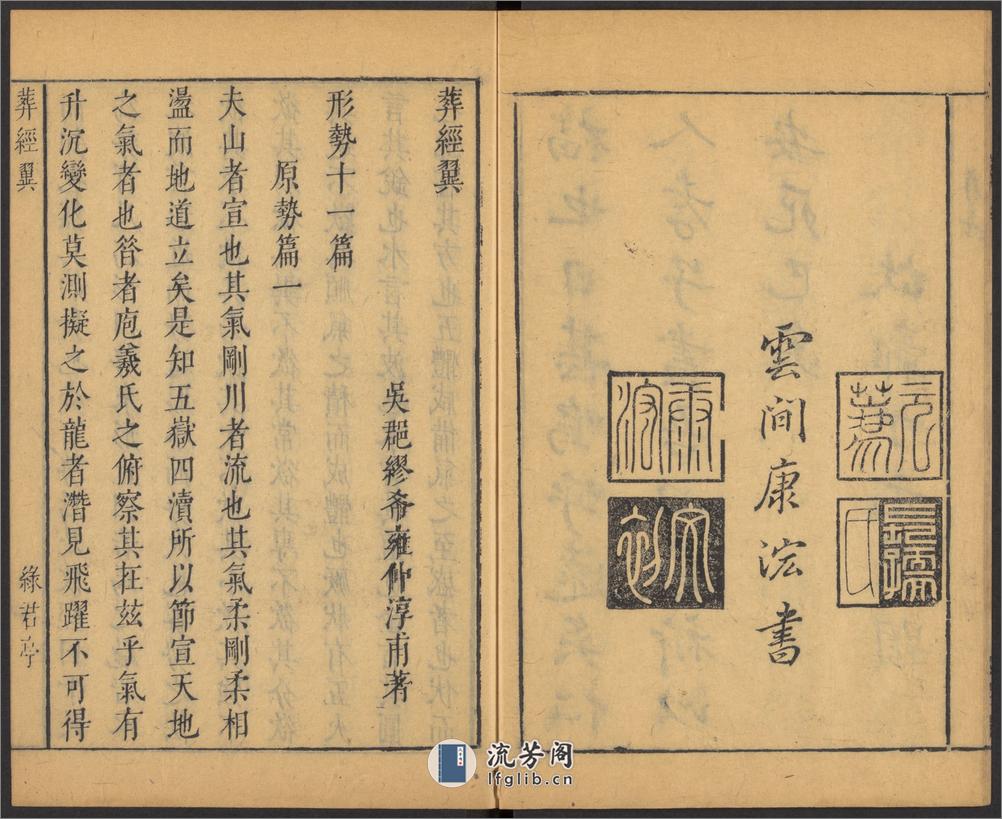 雲間康浤書
康浤
葬經翼
吳郡繆希雍仲淳甫著
形勢十一篇
原勢篇一
夫山者宣也其氣剛川者流也其氣柔剛柔相
盪而地道立矣是知五嶽四瀆所以節宣天地
之氣者也昝者庖羲氏之俯察其在玆乎氣有
升沉變化莫測擬之於龍者潛見飛躍不可得
葬經翼
綠君亭
流芳阁
lfglib.cn